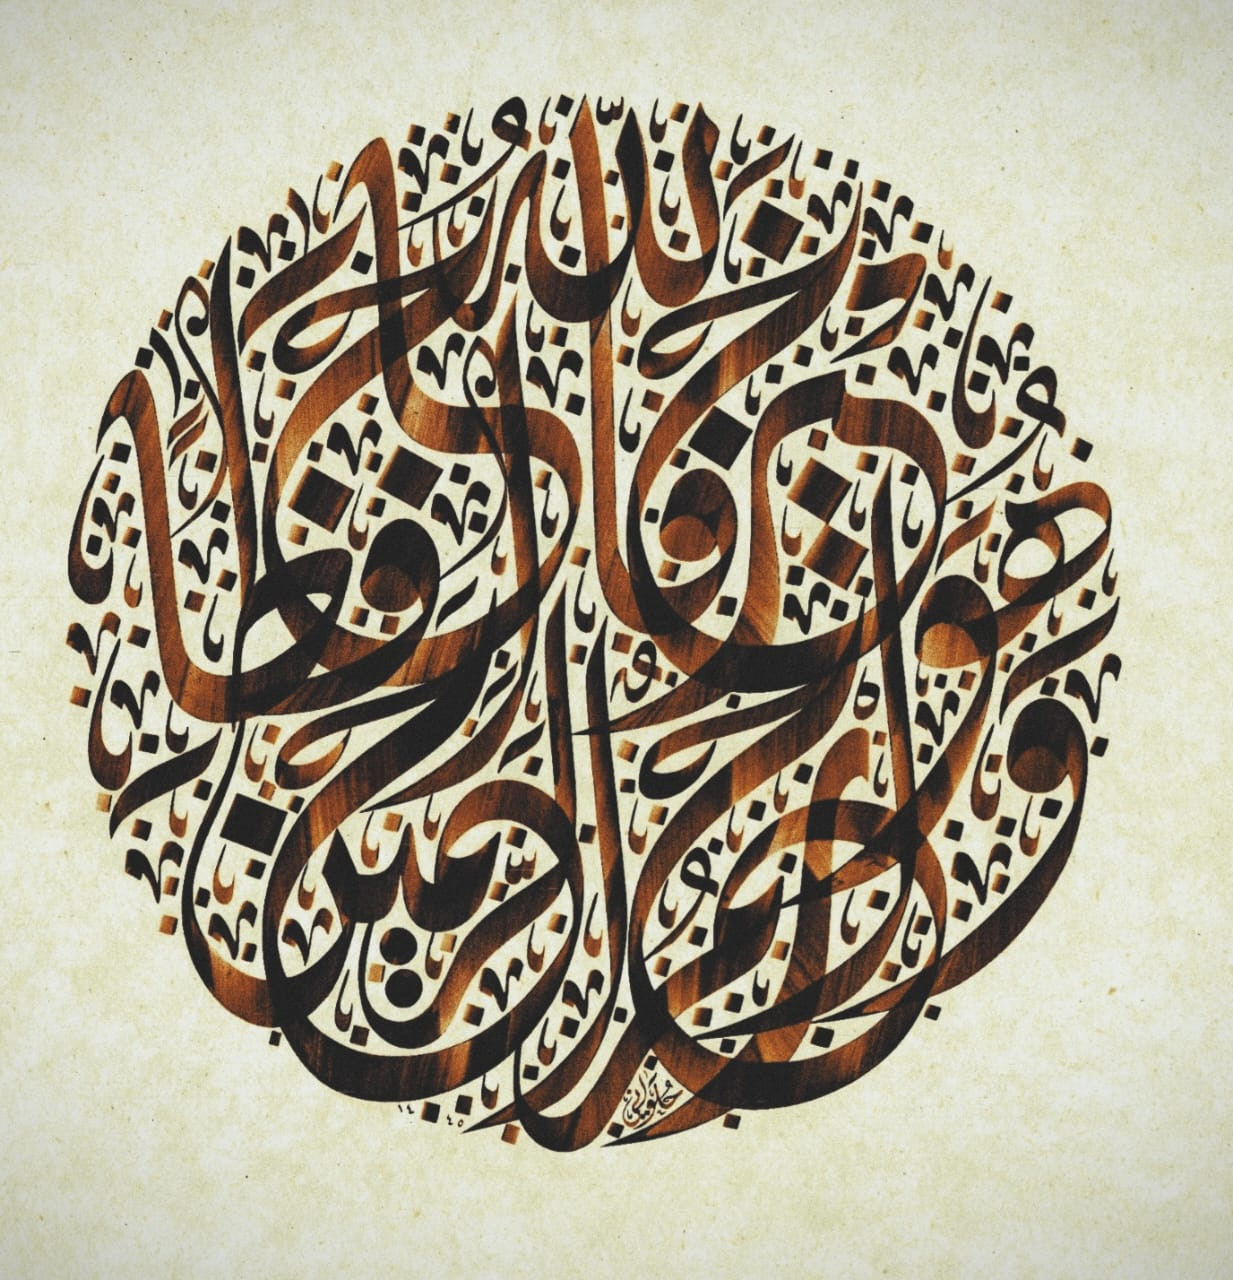 فَاللَّهُ خَيْرٌ حَافِظًا وَهُوَ أَرْحَمُ الرَّاحِمِينَ
١٤٤٥